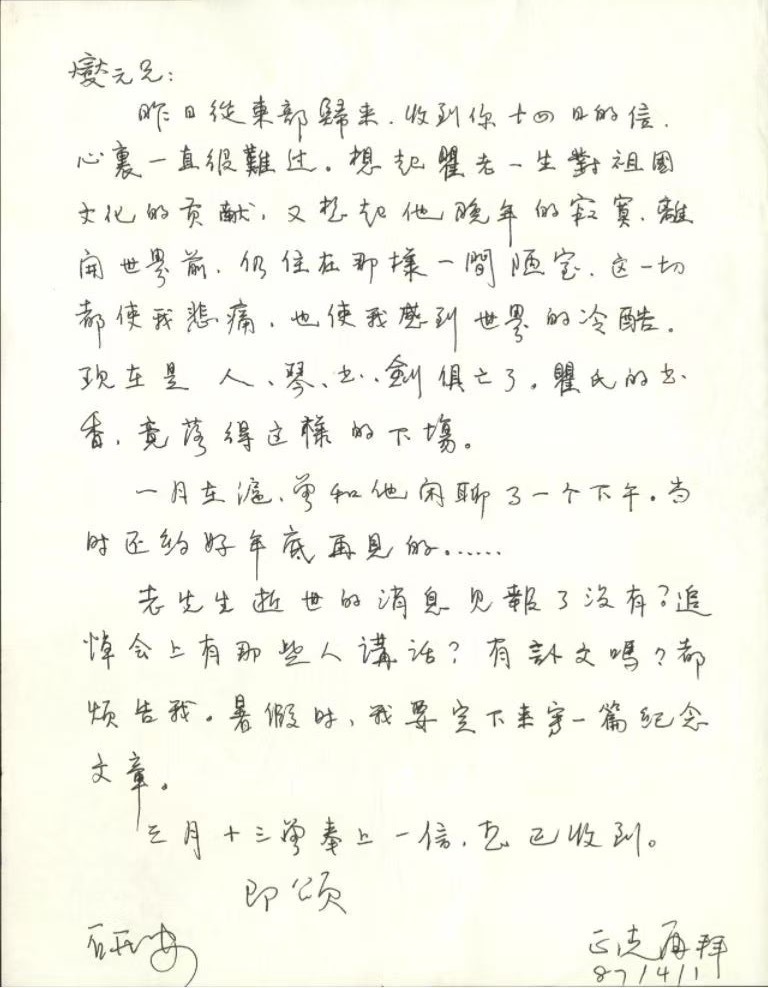 燮元兄：
昨日從東部歸来，收到你十四日的信，
心裏一直很難过。想起瞿老一生對祖國
文化的贡献，又想起他晚年的寂寞，離
開世界前，仍住在那樣一間陋室，这一切
都使我悲痛，也使我感到世界的冷酷。
现在是人、琴、书、劍俱亡了。瞿氏的书
香，竟落得这樣的下場。
一月在滬，曾和他闲聊了一个下午。当
时还约好年底再見的。……
老先生逝世的消息见報了没有？追
悼会上有那些人講话？有訃文嗎？都
烦告我。暑假时，我要定下来写一篇纪念
文章。
三月十三曾奉上一信，想已收到。
即颂
研安
正光再拜
87/4/1